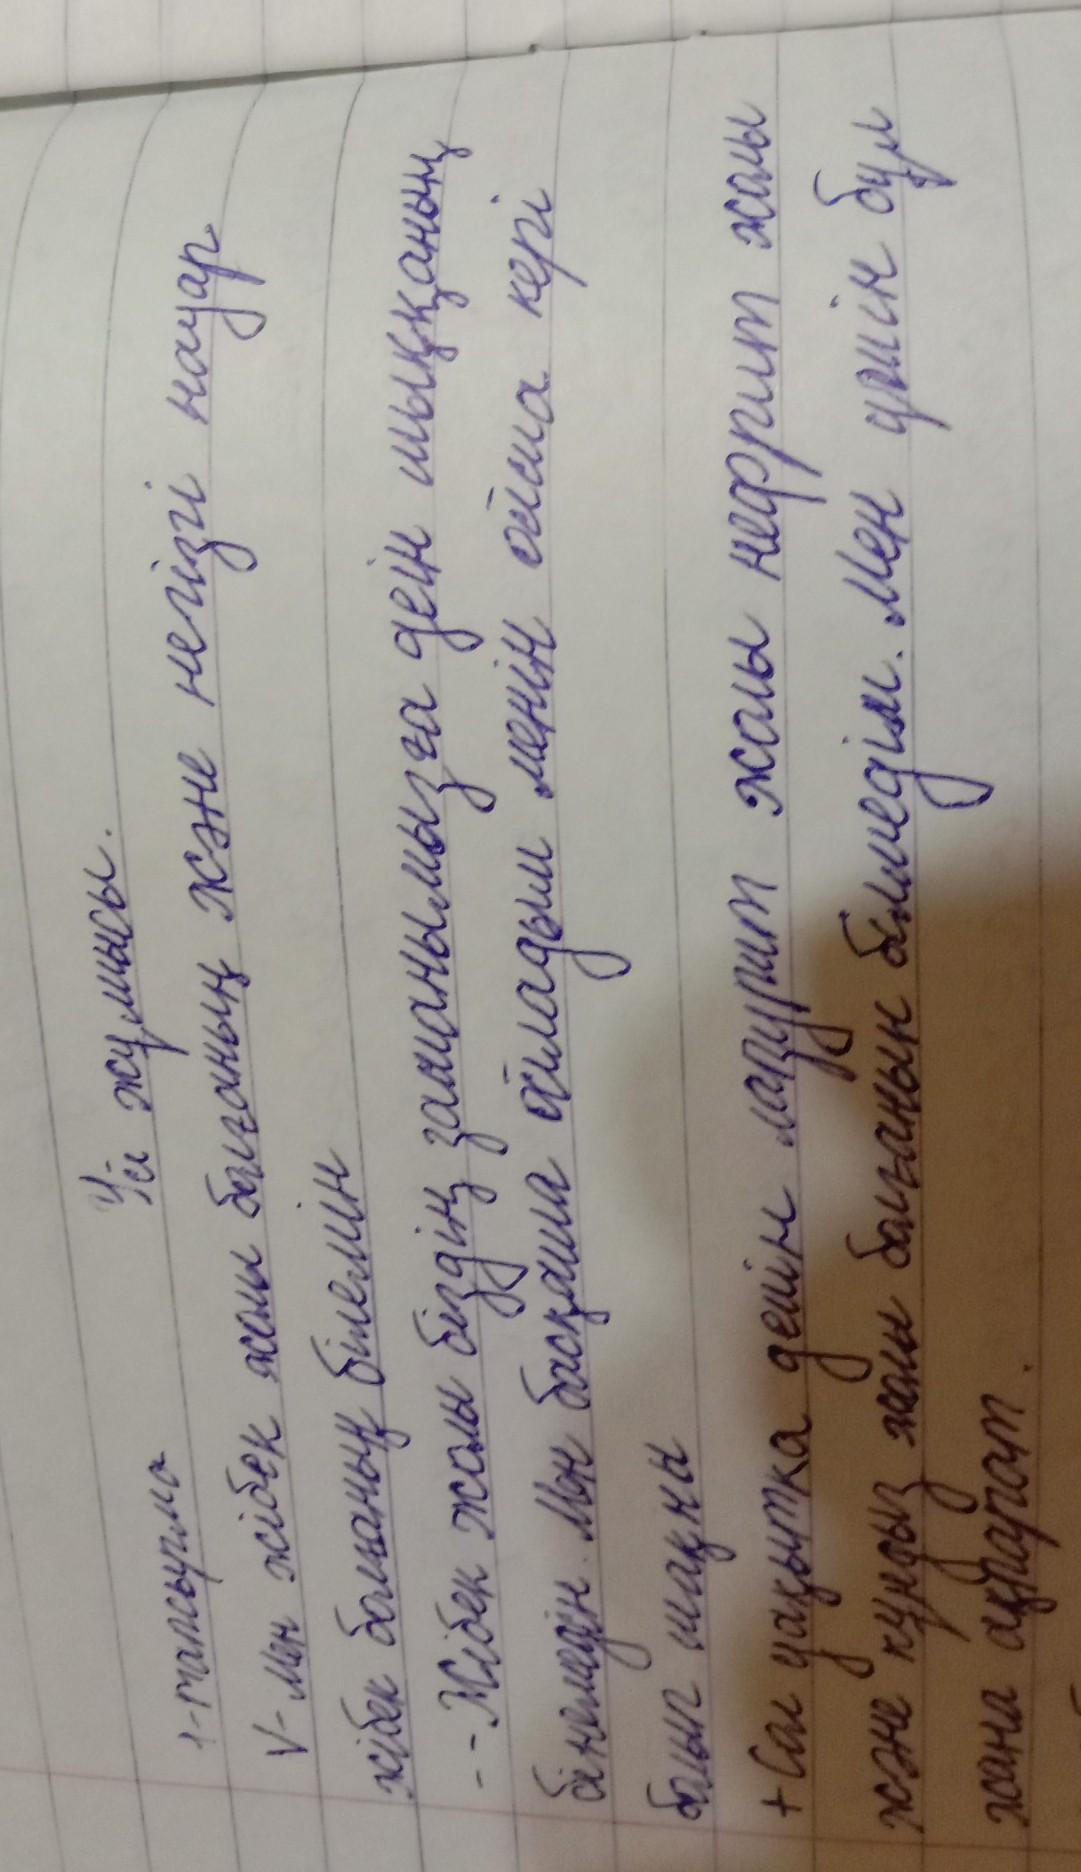 Үй жұмысы.
1-тапсырма
V - Мен жібек жолы болғанын және негізгі науар
жібек болманың білемін
- - Жібек жолы біздің заманымызға дейін шыққанын
білемедін. Мен басқаша ойладым менің ойыма кері
болып шақты
+ Сол уақытқа дейін лазурит жолы нефрит жолы
және құндыз жолы болғанын білмедім. Мен үшін бұл
жаңа ақпарат.